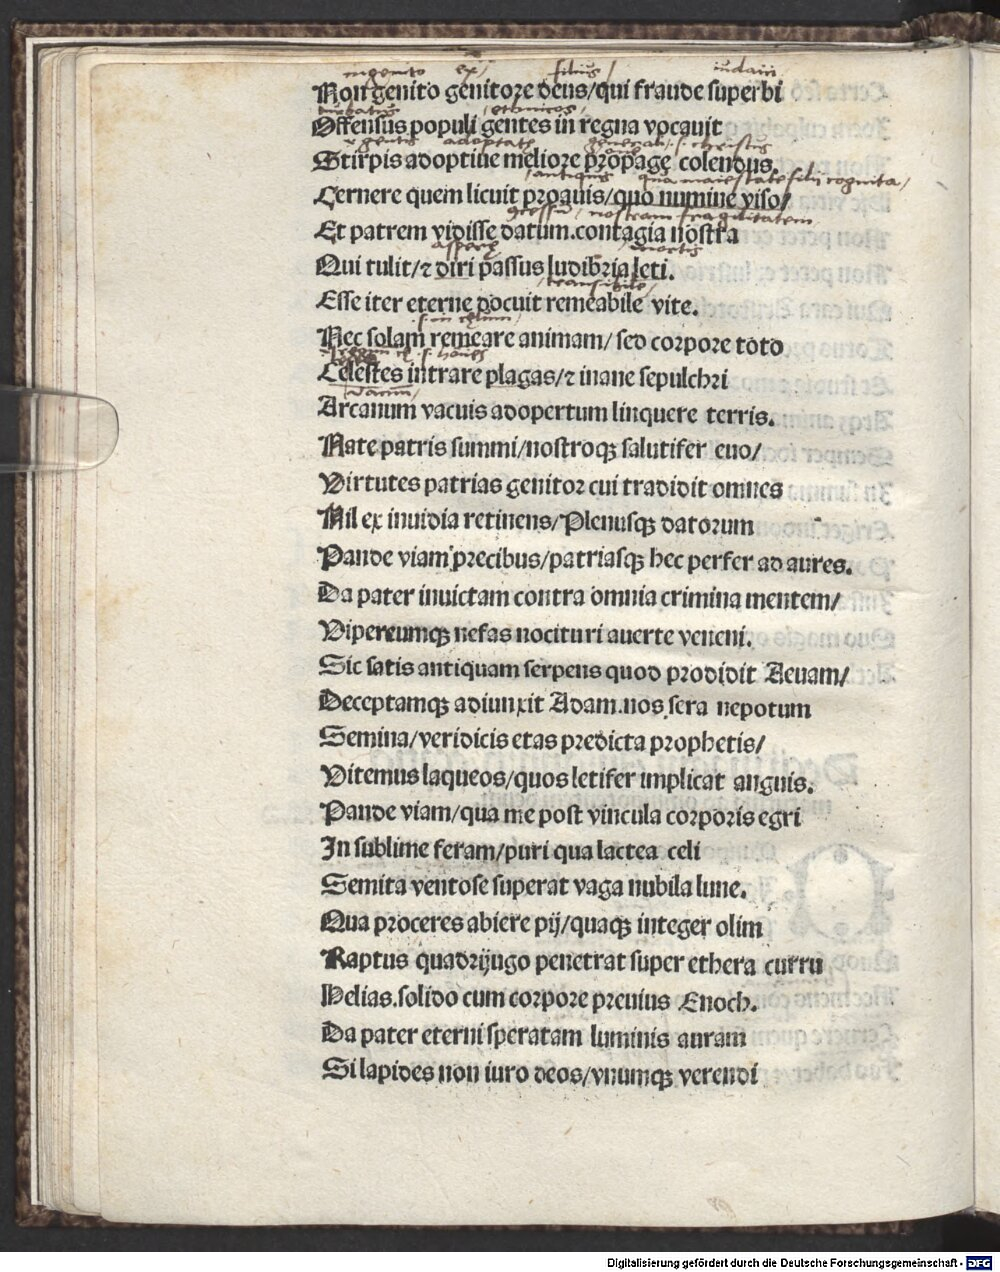 ingenito ex/ filius/ iudaici
Non genito genitore deus/qui fraude superbi
turbatus /ethnicos/
Offensus populi gentes in regna vocauit
gentis adoptate generati .s. christus
Stirpis adoptiue meliore propage colendus.
/antiquis qua maiestate filij cognita/
Cernere quem licuit proauis/quo numine viso/
/nostram fragilitatem
Et patrem vidisse datum.contagia nostra
/mortis
Qui tulit/⁊ diri passus ludibria leti.
/transibile/
Esse iter eterne docuit remeabile vite.
.s. in celum/
Nec solam remeare animam/sed corpore toto
Celestes intrare plagas/⁊ inane sepulchri
Arcanum vacuis adopertum linquere terris.
Nate patris summi/nostroqꝫ salutifer euo/
Virtutes patrias genitor cui tradidit omnes
Nil ex inuidia retinens/Plenusqꝫ datorum
Pande viam precibus/patriasqꝫ hec perfer ad aures.
Da pater inuictam contra omnia crimina mentem/
Vipereumqꝫ nefas nocituri auerte veneni.
Sic satis antiquam serpens quod prodidit Aeuam/
Deceptamqꝫ adiunxit Adam.nos sera nepotum
Semina/veridicis etas predicta prophetis/
Vitemus laqueos/quos letifer implicat anguis.
Pande viam/qua me post vincula corporis egri
In sublime feram/puri qua lactea celi
Semita ventose superat vaga nubila lune.
Qua proceres abiere pij/quaqꝫ integer olim
Raptus quadrijugo penetrat super ethera curru
Helias.solido cum corpore preuius Enoch.
Da pater eterni speratam luminis auram
Si lapides non iuro deos/vnumqꝫ verendi
Digitalisierung gefördert durch die Deutsche Forschungsgemeinschaft - DFG